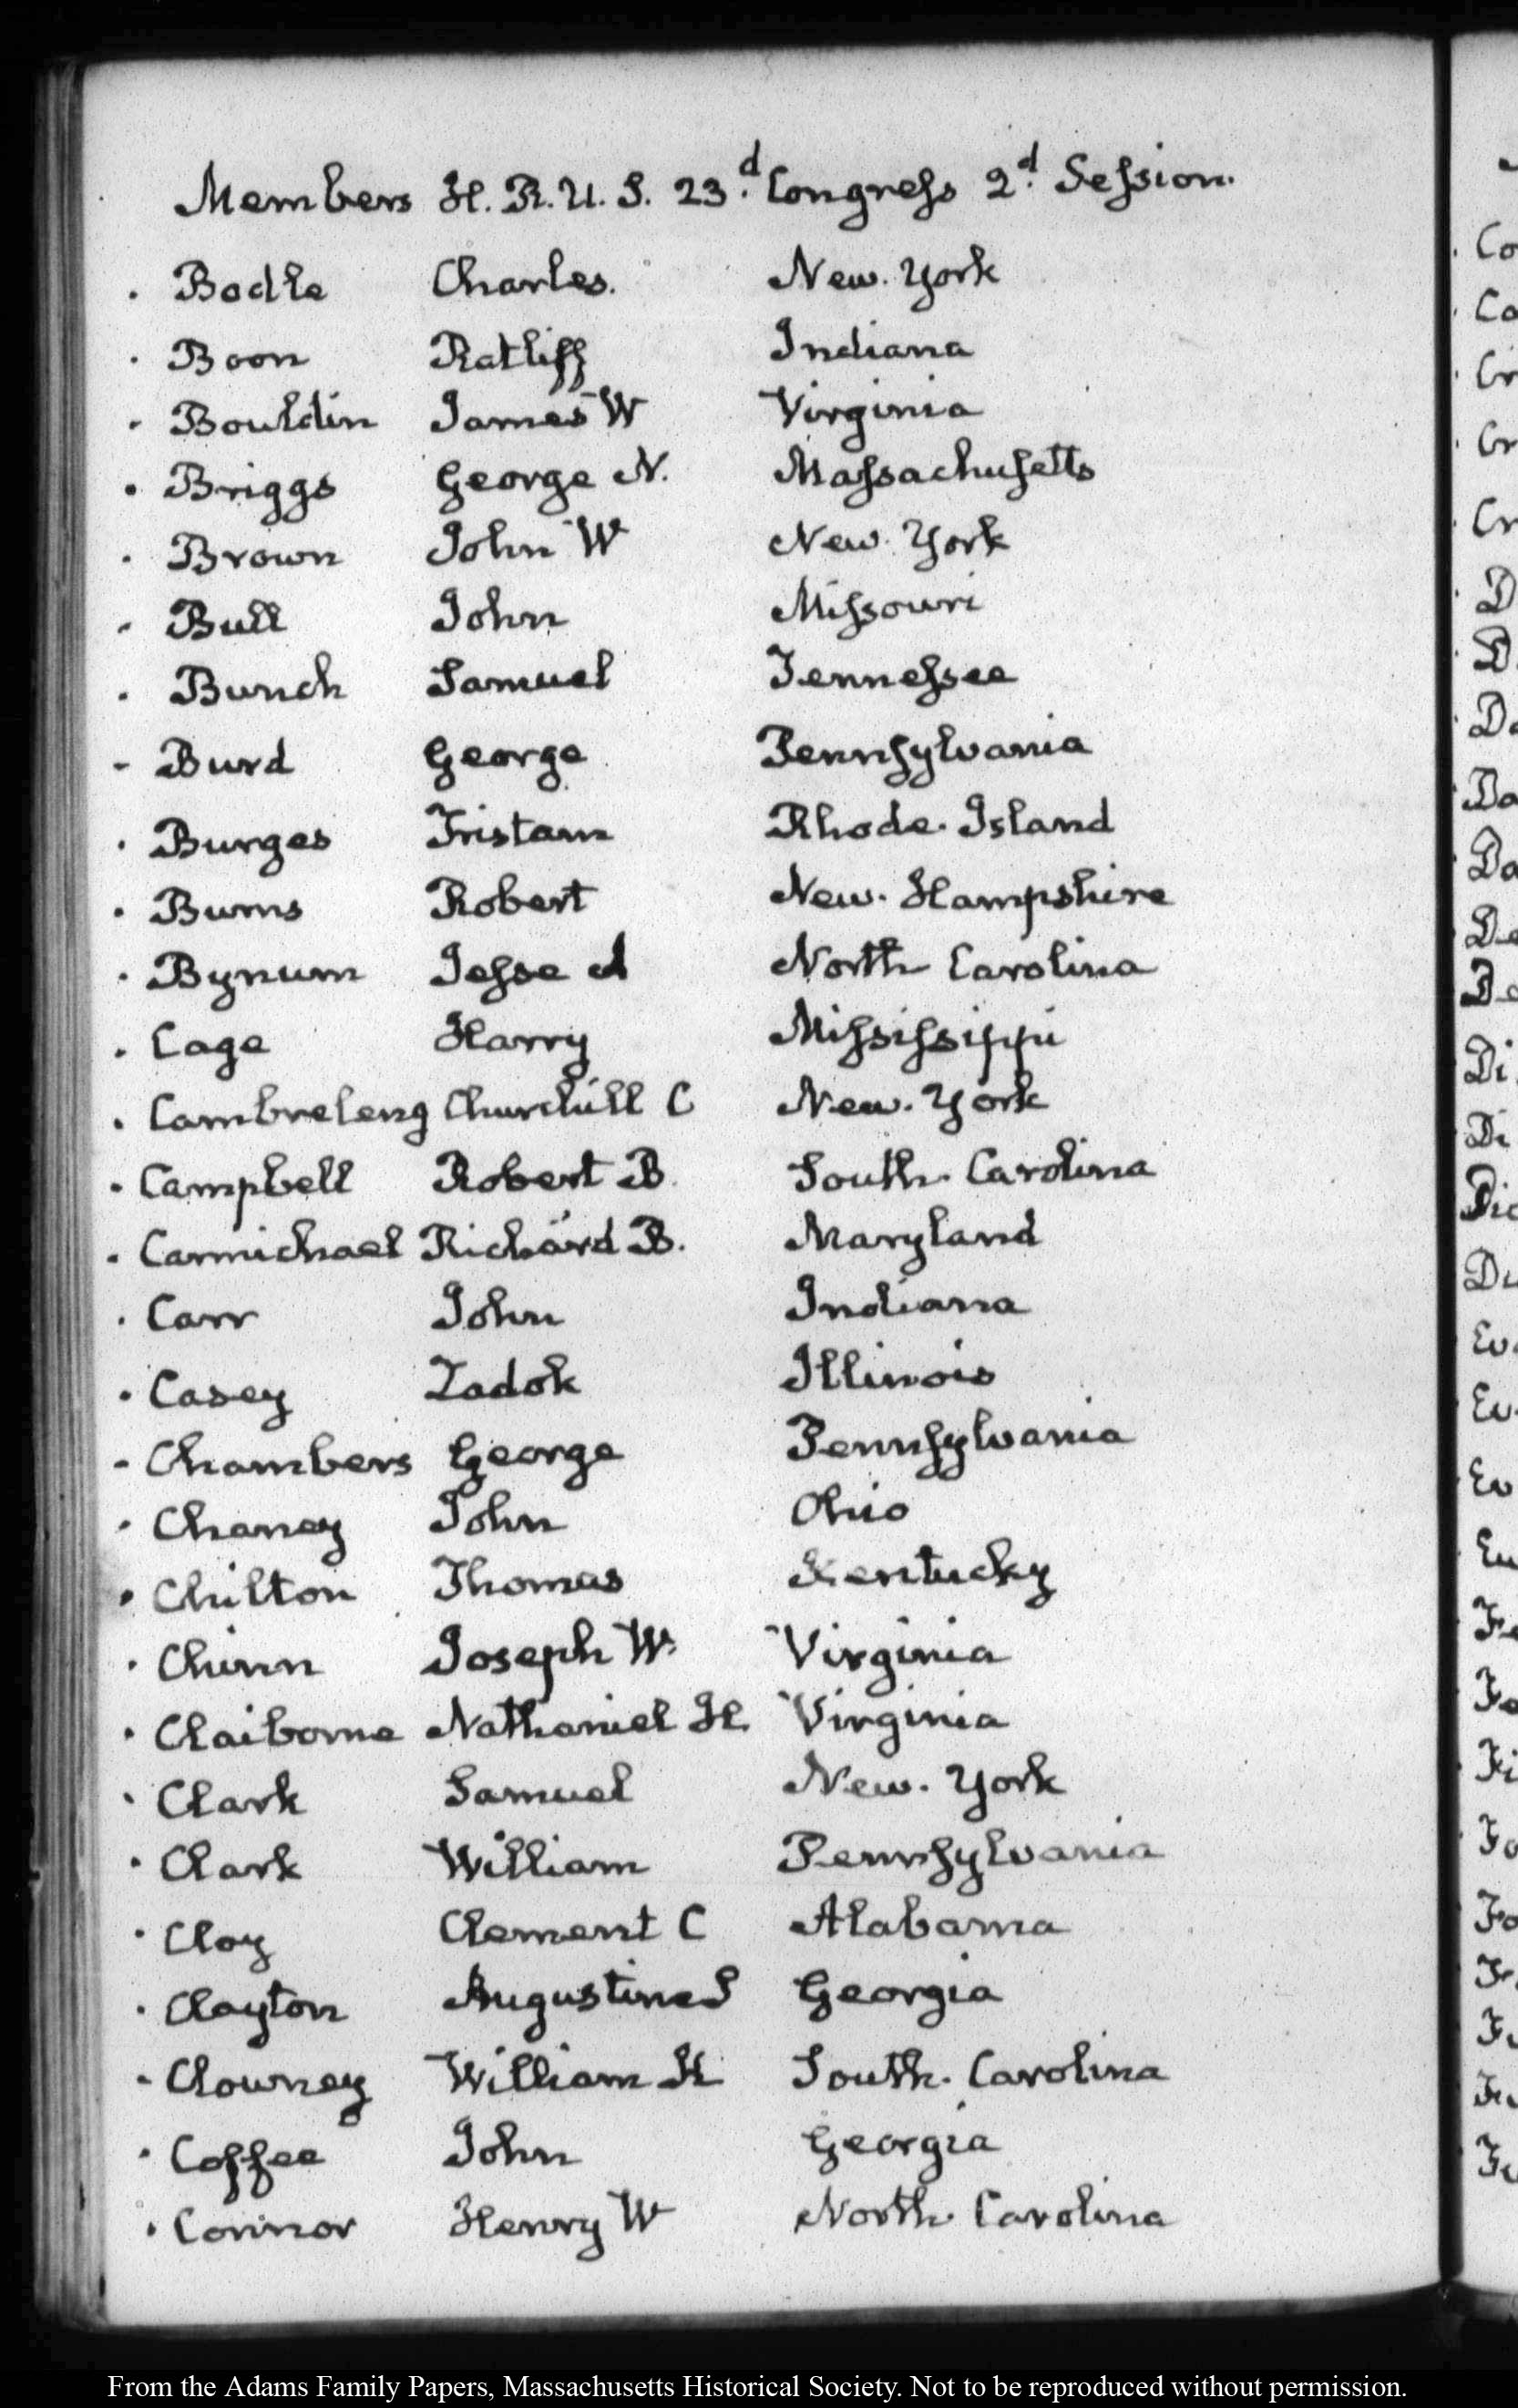 Members H. R. U. S. 23.d Congress 2.d Session.
. Bodle Charles. New. York
. Boon Ratliff Indiana
. Bouldin James W Virginia
. Briggs George N. Massachusetts
. Brown John W New York
. Bull John Missouri
. Bunch Samuel Tennessee
- Burd George Pennsylvania
. Burges Tristam Rhode. Island
. Burns Robert New. Hampshire
. Bynum Jesse A North Carolina
. Cage Harry Mississippi
. Cambreleng Churchill C New. York
. Campbell Robert B. South. Carolina
. Carmichael Richard B. Maryland
. Carr John Indiana
. Casey Zadok Illinois
- Chambers George Pennsylvania
. Chaney John Ohio
. Chilton Thomas Kentucky
. Chinn Joseph W. Virginia
. Claiborne Nathaniel H. Virginia
. Clark Samuel New. York
. Clark William Pennsylvania
. Clay Clement C Alabama
. Clayton Augustine S Georgia
- Clowney William K South. Carolina
. Coffee John Georgia
. Connor Henry W North. Carolina
Co
Ca
Cr
Cr
Cr
D
D
Da
Da
Da
De
De
Di
Di
Dic
Du
Ev
Ev
Ev
Fi
Fo
Fo
From the Adams Family Papers, Massachusetts Historical Society. Not to be reproduced without permission.